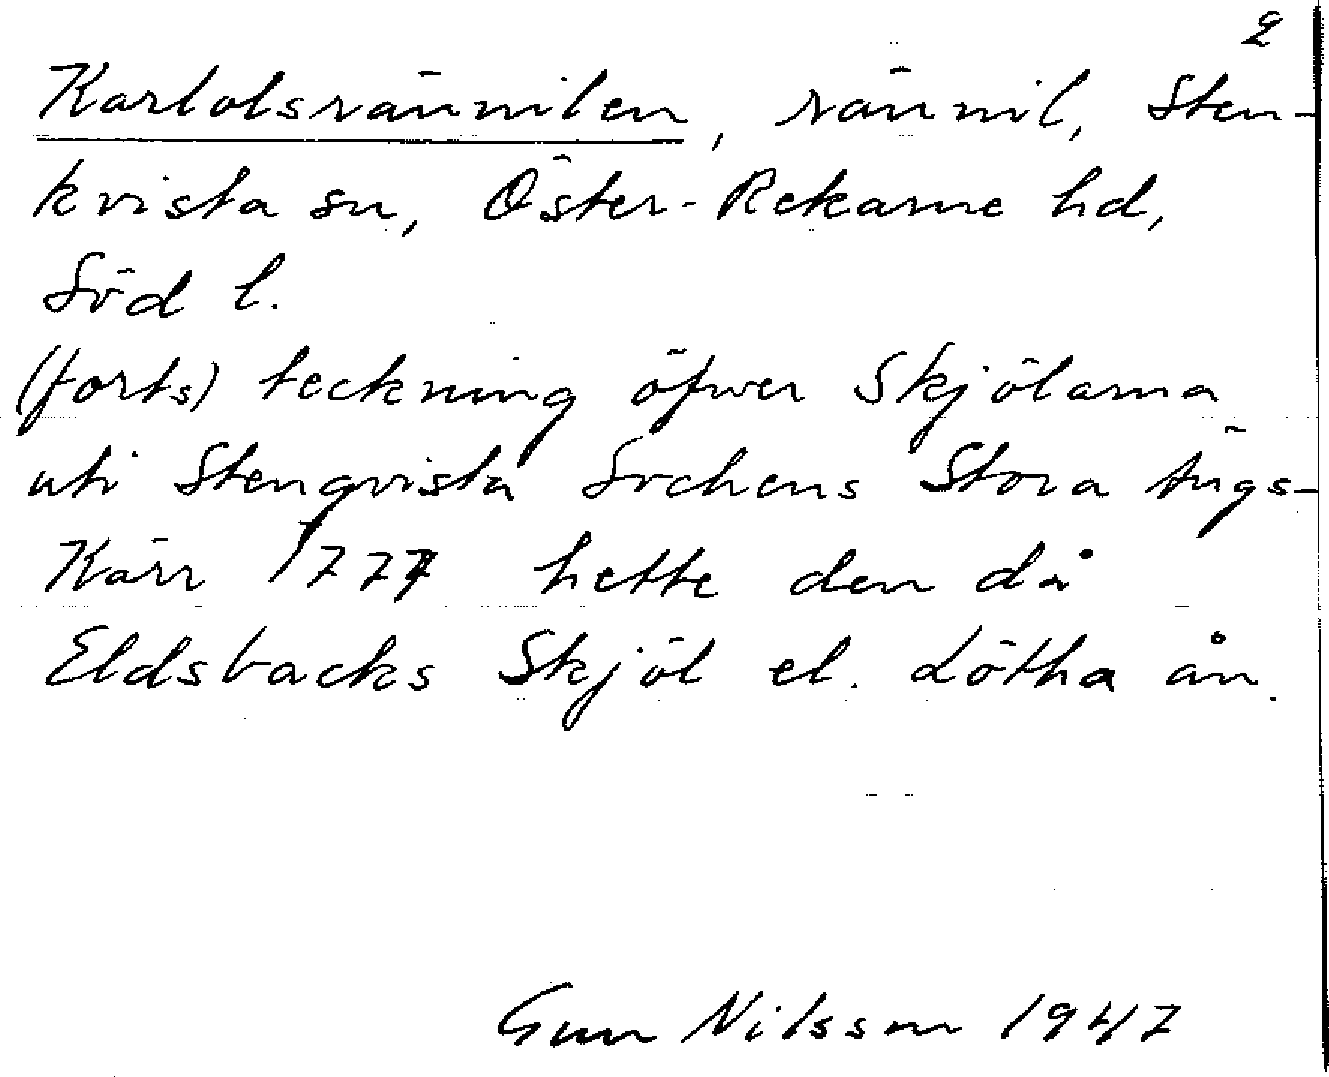 2
Karlolsrännilen, rännil, Sten-
kvista sn, Öster-Rekarne hd,
Söd l.
(forts) teckning öfwer Skjölarna
uti Stenqvista Sochens Stora Ängs-
Kärr 1777 hette den då
Eldsbacks Skjöl el. Lötha ån.
Gun Nilsson 1947